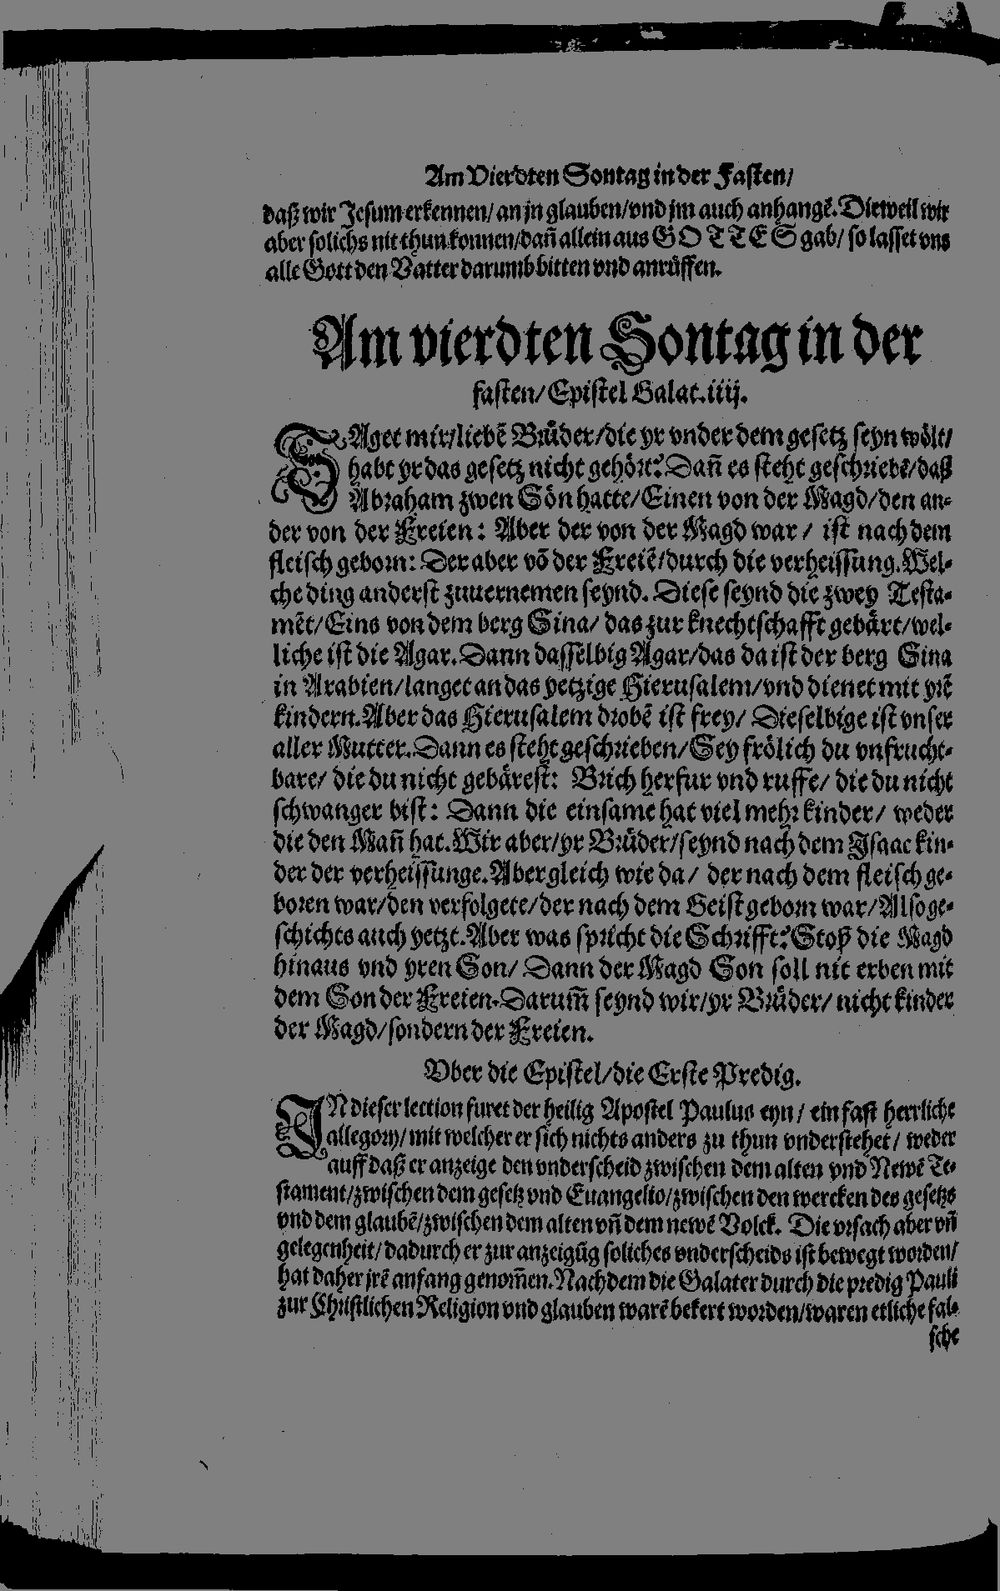 Am Vierdten Sontag in der Fasten/
daß wir Jesum erkennen/ an jn glauben/vnd jm auch anhangẽ. Dieweil wir
aber solichs nit thun konnen/dañ allein aus GOTTES gab/ so lasset vns
alle Gott den Vatter darumb bitten vnd anrůffen.
Am vierdten Sontag in der
fasten/Epistel Galat.iiij.
SAget mir/liebẽ Brůder/die yr vnder dem gesetz seyn wölt/
habt yr das gesetz nicht gehört? Dañ es steht geschriebẽ/daß
Abraham zwen Sön hatte/Einen von der Magd/den an-
der von der Freien: Aber der von der Magd war/ ist nach dem
fleisch geborn: Der aber võ der Freiẽ/durch die verheissung. Wel-
che ding anderst zuuernemen seynd. Diese seynd die zwey Testa-
mẽt/Eins von dem berg Sina/ das zur knechtschafft gebärt/wel-
liche ist die Agar. Dann dasselbig Agar/das da ist der berg Sina
in Arabien/langet an das yetzige Hierusalem/vnd dienet mit yrẽ
kindern. Aber das Hierusalem drobẽ ist frey/ Dieselbige ist vnser
aller Mutter. Dann es steht geschrieben/Sey frölich du vnfrucht-
bare/ die du nicht gebärest: Brich herfur vnd ruffe/ die du nicht
schwanger bist: Dann die einsame hat viel mehr kinder/ weder
die den Mañ hat. Wir aber/yr Brůder/seynd nach dem Isaac kin-
der der verheissunge. Aber gleich wie da/ der nach dem fleisch ge-
boren war/den verfolgete/der nach dem Geist geborn war/Also ge-
schichts auch yetzt. Aber was spricht die Schrifft? Stoß die Magd
hinaus vnd yren Son/ Dann der Magd Son soll nit erben mit
dem Son der Freien. Darum̃ seynd wir/yr Brůder/ nicht kinder
der Magd/sondern der Freien.
Vber die Epistel/die Erste Predig.
IN dieser lection furet der heilig Apostel Paulus eyn/ ein fast herrliche
allegory/ mit welcher er sich nichts anders zu thun vnderstehet/ weder
auff daß er anzeige den vnderscheid zwischen dem alten vnd Newẽ Te-
stament/zwischen dem gesetz vnd Euangelio/zwischen den wercken des gesetzs
vnd dem glaubẽ/zwischen dem alten vñ dem newẽ Volck. Die vrsach aber vñ
gelegenheit/ dadurch er zur anzeigũg soliches vnderscheids ist bewegt worden/
hat daher jrẽ anfang genom̃en. Nachdem die Galater durch die predig Pauli
zur Christlichen Religion vnd glauben warẽ bekert worden/waren etliche fal-
sche